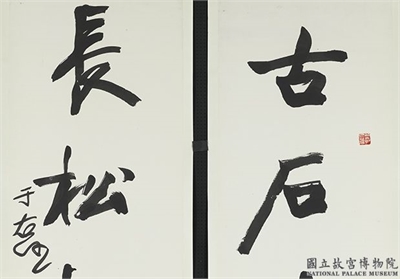 古石
長松
于右任
國立故宮博物院
NATIONAL PALACE MUSEUM